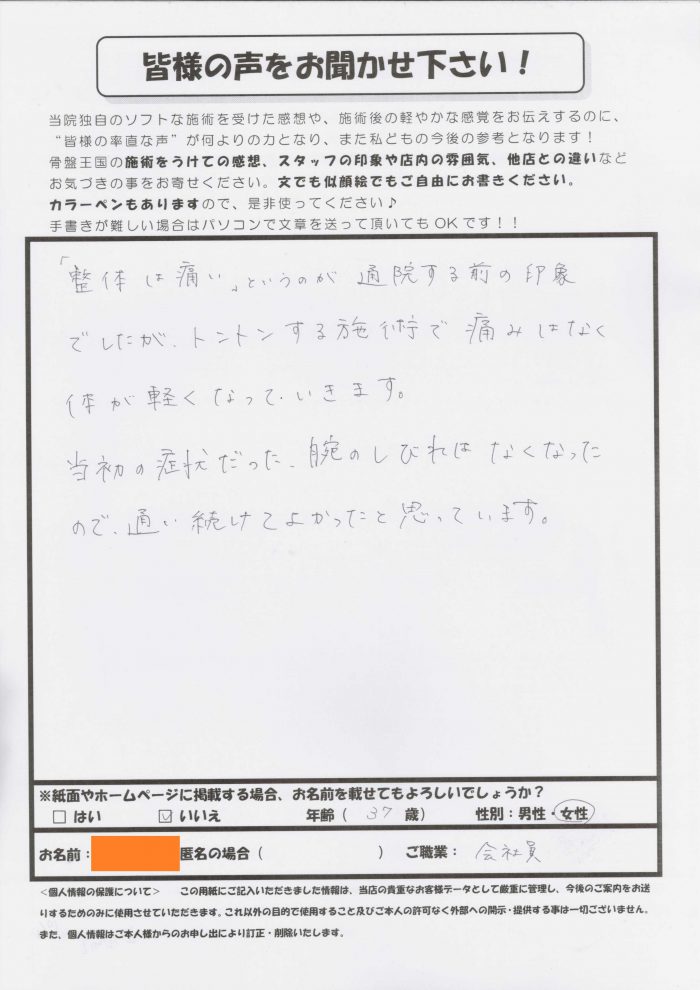 皆様の声をお聞かせ下さい！
当院独自のソフトな施術を受けた感想や、施術後の軽やかな感覚をお伝えするのに、
“皆様の率直な声”が何よりの力となり、また私どもの今後の参考となります！
骨盤王国の施術をうけての感想、スタッフの印象や店内の雰囲気、他店との違いなど
お気づきの事をお寄せください。文でも似顔絵でもご自由にお書きください。
カラーペンもありますので、是非使ってください♪
手書きが難しい場合はパソコンで文章を送って頂いてもOKです！！
「整体は痛い」というのが通院する前の印象
でしたが、トントンする施術で痛みはなく
体が軽くなって、いきます。
当初の症状だった、腕のしびれはなくなった
ので、通い続けてよかったと思っています。
※紙面やホームページに掲載する場合、お名前を載せてもよろしいでしょうか？
□ はい ☑ いいえ 年齢（ 37 歳） 性別：男性・女性
お名前： 匿名の場合（ ） ご職業： 会社員
＜個人情報の保護について＞ この用紙にご記入いただきました情報は、当店の貴重なお客様データとして厳重に管理し、今後のご案内をお送
りするためのみに使用させていただきます。これ以外の目的で使用すること及びご本人の許可なく外部への開示・提供する事は一切ございません。
また、個人情報はご本人様からのお申し出により訂正・削除いたします。